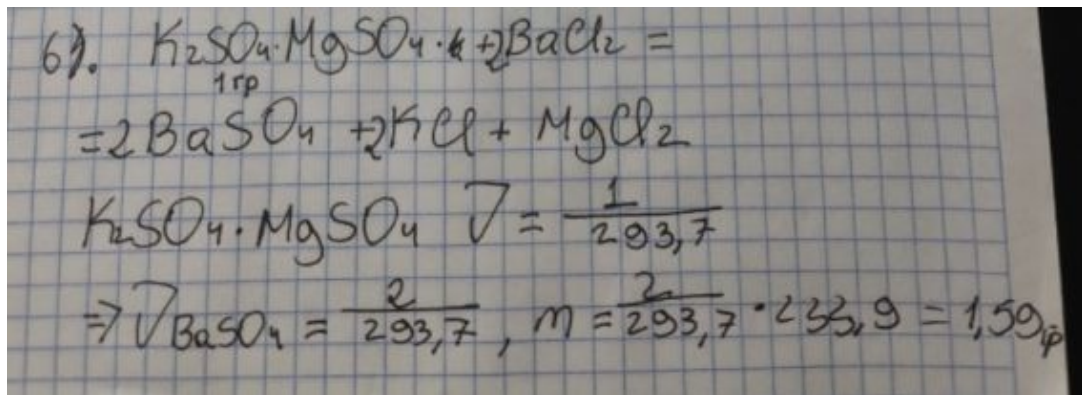 6). K₂SO₄·MgSO₄· +2BaCl₂ =
1 гр
=2BaSO₄ +2KCl + MgCl₂
K₂SO₄·MgSO₄ ν = 1/293,7
⇒ ν BaSO₄ = 2/293,7, m = 2/293,7 · 233,9 = 1,59 гр